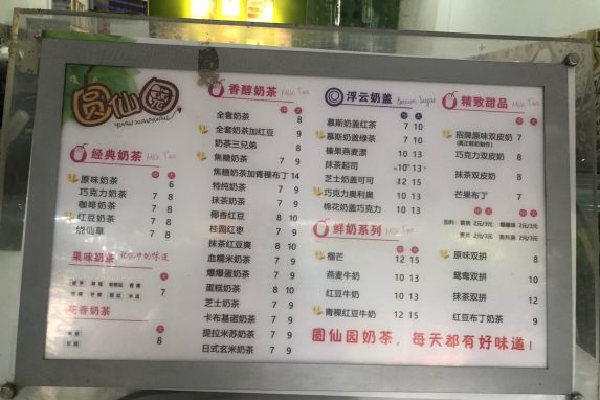 圆仙园
经典奶茶 Milk Tea
中 大
原味奶茶 6
巧克力奶茶 7 8
咖啡奶茶 7 8
红豆奶茶 7 8
烧仙草 7 8
果味奶茶
7
花香奶茶
8
香醇奶茶 Milk Tea
中 大
全套奶茶 8
全套奶茶加红豆 9
奶茶三兄弟 8
焦糖奶茶 7 9
焦糖奶茶加青稞布丁 14
特纯奶茶 7 9
抹茶奶茶 7 9
椰香红豆 8 10
桂圆红枣 7 9
抹茶红豆爽 8 10
血糯米奶茶 7 9
爆爆蛋奶茶 7 9
蛋糕奶茶 8 10
芝士奶茶 7 9
卡布基诺奶茶 7 9
提拉米苏奶茶 7 9
日式玄米奶茶 7 9
浮云奶盖
中 大
慕斯奶盖红茶 7 10
慕斯奶盖绿茶 7 10
榛果燕麦漂 10 13
抹茶起司 10 13
芝士奶盖可可 12 15
巧克力奥利奥 10 13
棉花奶盖巧克力 10 13
鲜奶系列 Milk Tea
中 大
榴芒 12 15
燕麦牛奶 10 13
红豆牛奶 10 13
青稞红豆牛奶 12 15
精致甜品 Milk Tea
招牌原味双皮奶 7
巧克力双皮奶 8
抹茶双皮奶 8
芒果布丁 7
原味双拼 8
鸳鸯双拼 10
抹茶双拼 12
红豆布丁奶茶 9
圆仙园奶茶，每天都有好味道！